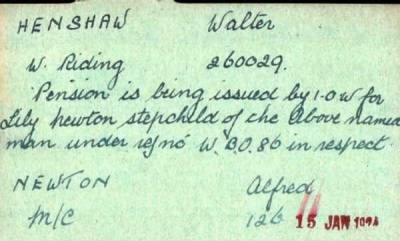 HENSHAW Walter
W. Riding 260029.
Pension is being issued by I.O.W for
Lily Newton stepchild of the above named
man under ref no W.B.O. 86 in respect.
NEWTON Alfred
M/C 126 15 JAN 1924